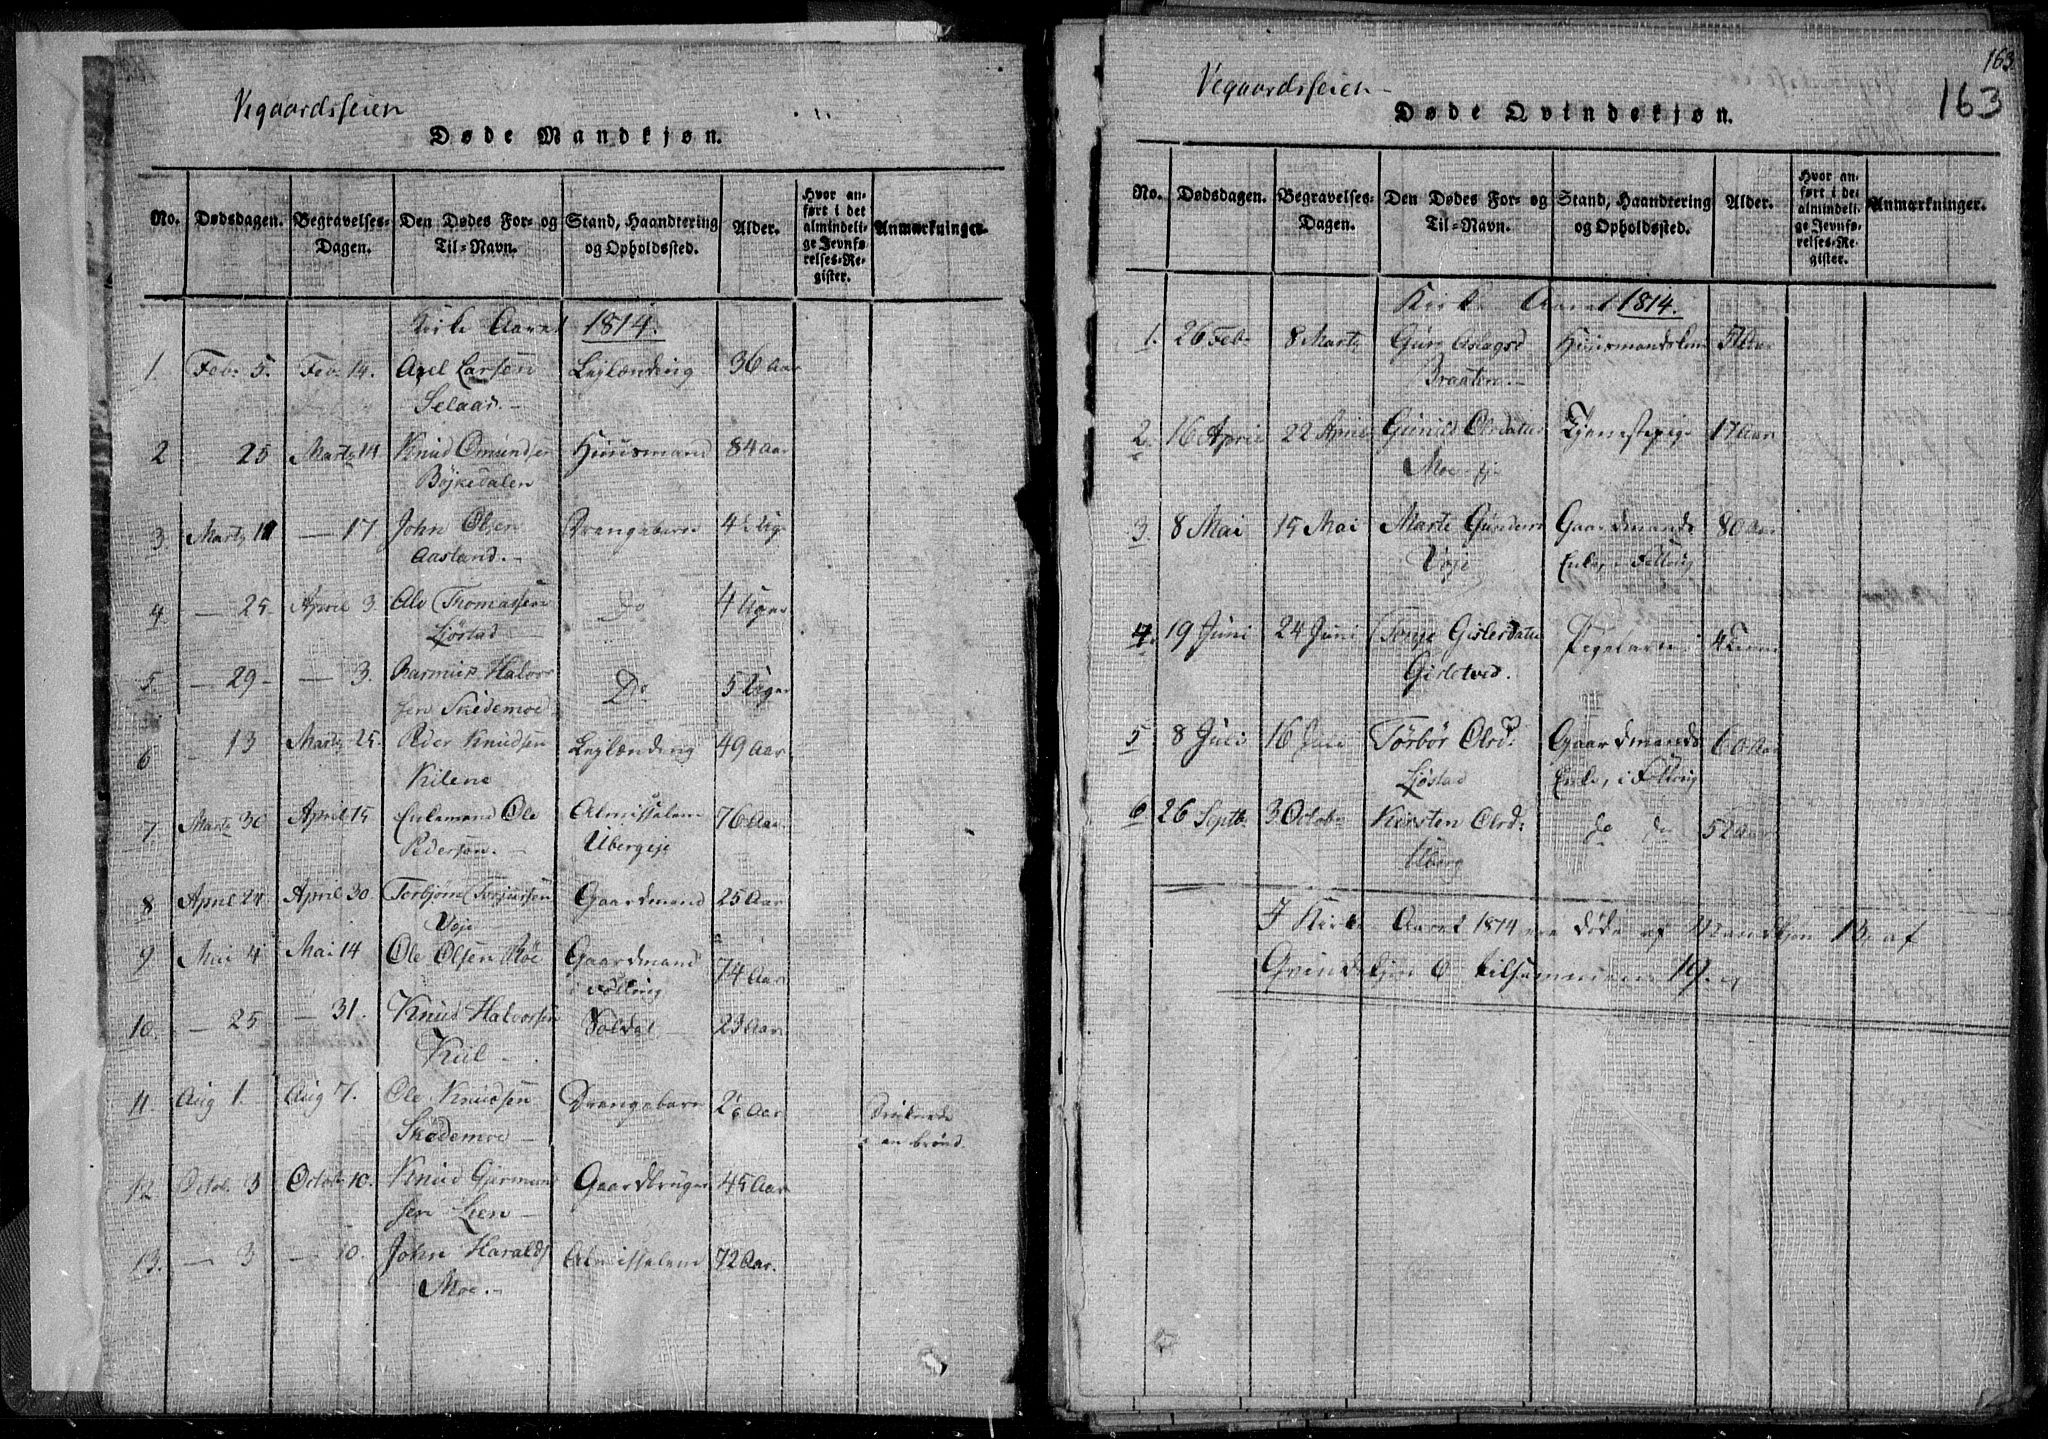 Vegaardsseien
Døde Mandkjøn.
No. Dødsdagen. Begravelses-Dagen. Den Dødes For- og Til-Navn. Stand, Haandtering og Opholdssted. Alder. Hvor anført i det almindelige Jevnførelses-Register. Anmærkninger.
Kirke Aaret 1814.
1. Feb. 5. Feb. 14. Axel Larsen Lejlænding 36 Aar
Selaas.
2 — 25 Marts 14 Knud Omundsen Huusmand 84 Aar
Bøjkedalen
3. Marts 11 — 17 John Olsen Drengebarn
Aasland.
4 — 25. April 3. Ole Thomassen Do 4 Uger
Ljøstad
5. — 29 — 3. Rasmus Halvor Do 5 Uger
sen Skedemoe
6 — 13 Marts 25. Peder Knudsen Lejlænding 49 Aar
Kilene
7. Marts 30 April 15 Enkemand Ole Almisselem 76 Aar
Pedersen. Ubergeje
8 April 24 April 30 Torbjørn Torjussen Gaardmand 25 Aar
Voje
9 Mai 4 Mai 14 Ole Olsen Røe Gaardmand 74 Aar
i Følling
10. — 25 — 31. Knud Halvorsen Soldat 23 Aar
Kiil
11. Aug 1. Aug 7. Ole Knudsen Drengebarn Aar
Skedemoe en brønd
12 Octob. 3 Octob. 10. Knud Gurmund Gaardbruger 45 Aar
sen Lien
13. — 3 — 10. John Haralds Almisselem 72 Aar.
Moe.
163
163
Vegaardsseien
Døde Qvindekjøn.
No. Dødsdagen. Begravelses-Dagen. Den Dødes For- og Til-Navn. Stand, Haandtering og Opholdssted. Alder. Hvor anført i det almindelige Jevnførelses-Register. Anmærkninger.
Kirke Aaret 1814.
1. 26 Feb. 8 Marts Aslagsd Huusmands
Braaten.
2. 16 April 22 April Gunild Olsdatter Tjenestepige 17 Aar
Moe
3. 8 Mai 15 Mai Marte Gunders Gaardmands 80 Aar
Voje Enke,
4. 19 Juni 24 Juni Tonje Gislesdatter Pigebarn 4
Gisletved.
5 8 Juli 16 Juli Torbør Olsd. Gaardmands 60 Aar
Ljøstad Enke, i
6 26 Septb. 3 Octob. Kirsten Olsd: do do 52 Aar
Uberg
I Kirke Aaret 1814 ere døde af Mandkjøn 13, af
Qvindekjøn 6 tilsammen 19.